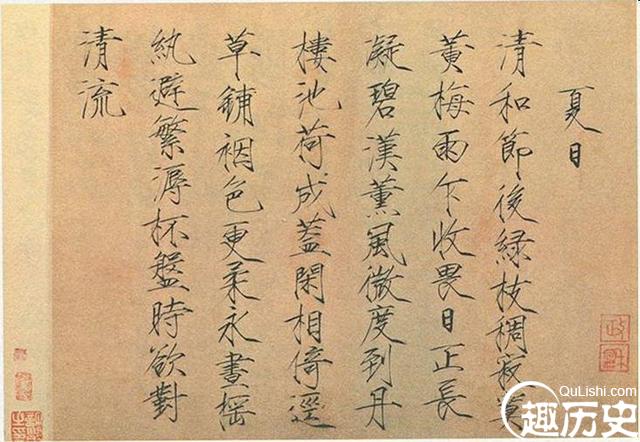 夏日
清和節後綠枝稠寂莫
黃梅雨乍收畏日正長
凝碧漢薰風微度到丹
樓池荷成蓋閑相倚逕
草鋪裀色更柔永晝搖
紈避繁溽杯盤時欲對
清流
政和
QuLishi.com
趣历史